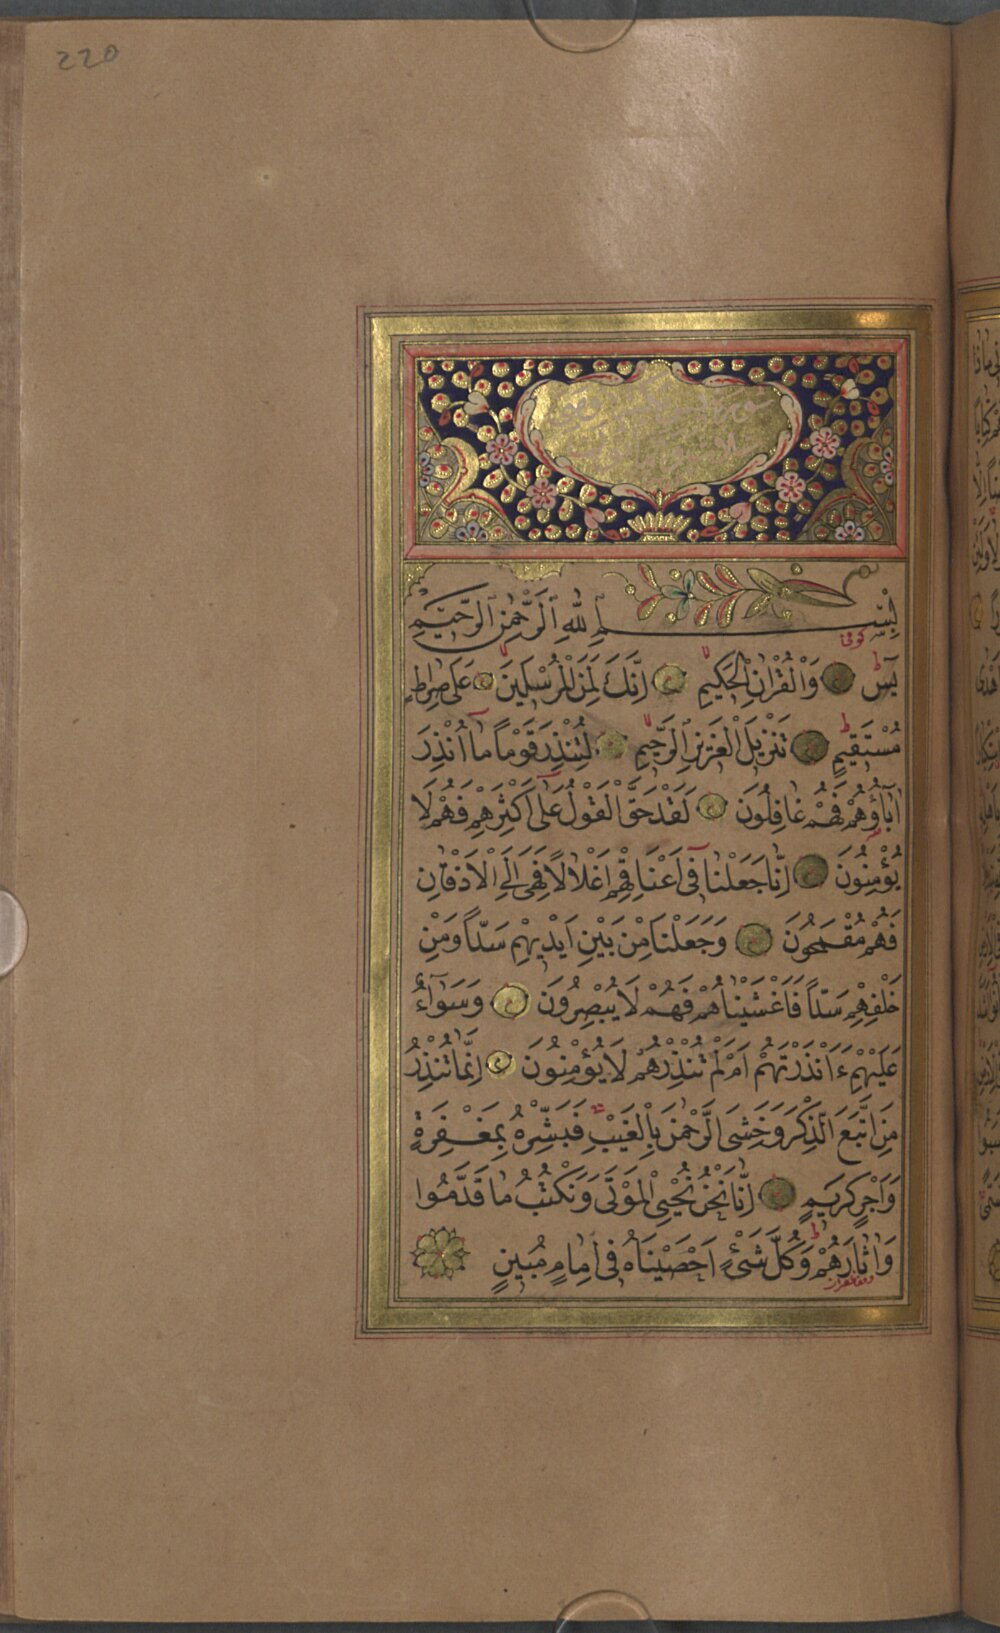 220
بِسْمِ اللّٰهِ الرَّحْمٰنِ الرَّحِيمِ
كوفى
يٰسٓ وَالْقُرْاٰنِ الْحَكِيمِ اِنَّكَ لَمِنَ الْمُرْسَلِينَ عَلٰى صِرَاطٍ
مُسْتَقِيمٍ تَنْزِيلَ الْعَزِيزِ الرَّحِيمِ لِتُنْذِرَ قَوْمًا مٓا اُنْذِرَ
اٰبَٓاؤُهُمْ فَهُمْ غَافِلُونَ لَقَدْ حَقَّ الْقَوْلُ عَلٰٓى اَكْثَرِهِمْ فَهُمْ لَا
يُؤْمِنُونَ اِنَّا جَعَلْنَا فٓى اَعْنَاقِهِمْ اَغْلَالًا فَهِىَ اِلَى الْاَذْقَانِ
فَهُمْ مُقْمَحُونَ وَجَعَلْنَا مِنْ بَيْنِ اَيْدِيهِمْ سَدًّا وَمِنْ
خَلْفِهِمْ سَدًّا فَاَغْشَيْنَاهُمْ فَهُمْ لَا يُبْصِرُونَ وَسَوَٓاءٌ
عَلَيْهِمْ ءَاَنْذَرْتَهُمْ اَمْ لَمْ تُنْذِرْهُمْ لَا يُؤْمِنُونَ اِنَّمَا تُنْذِرُ
مَنِ اتَّبَعَ الذِّكْرَ وَخَشِىَ الرَّحْمٰنَ بِالْغَيْبِ فَبَشِّرْهُ بِمَغْفِرَةٍ
وَاَجْرٍ كَرِيمٍ اِنَّا نَحْنُ نُحْيِى الْمَوْتٰى وَنَكْتُبُ مَا قَدَّمُوا
وَاٰثَارَهُمْ وَكُلَّ شَىْءٍ اَحْصَيْنَاهُ فٓى اِمَامٍ مُبِينٍ